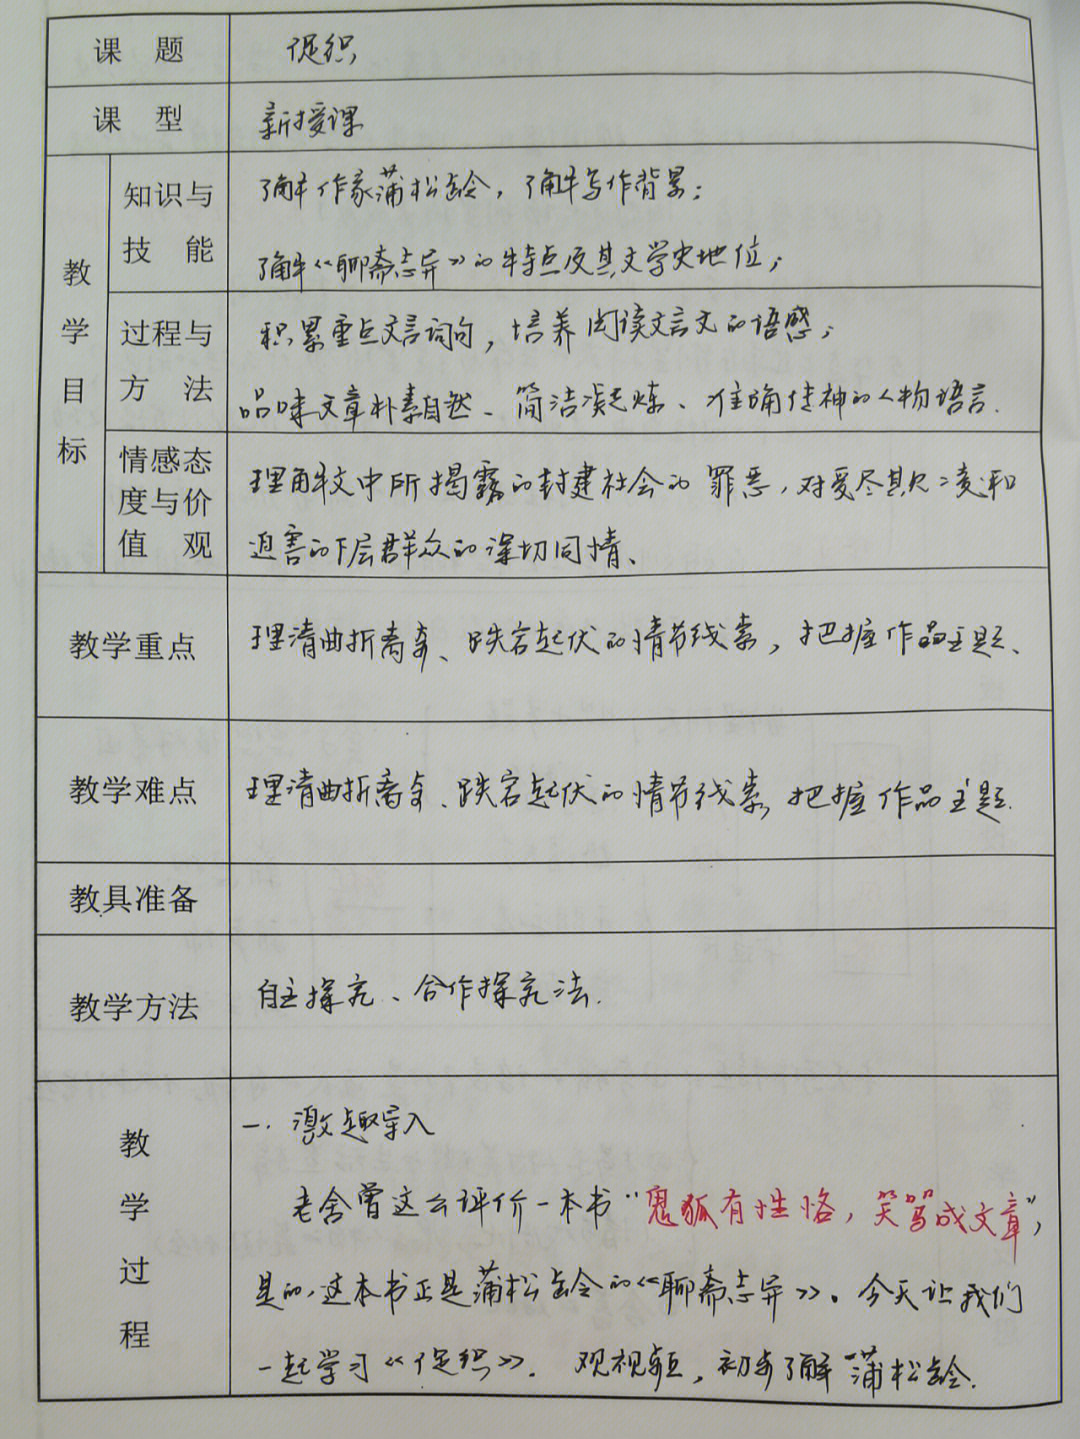 课 题 促织
课 型 新授课
教学目标
知识与技 能
了解作家蒲松龄，了解写作背景；
了解《聊斋志异》的特点及其文学史地位；
过程与方 法
积累重点文言词句，培养阅读文言文的语感；
品味文章朴素自然、简洁凝炼、准确传神的人物语言.
情感态度与价值 观
理解文中所揭露的封建社会的罪恶，对受尽欺凌和
迫害的下层群众的深切同情、
教学重点 理清曲折离奇、跌宕起伏的情节线索，把握作品主题、
教学难点 理清曲折离奇、跌宕起伏的情节线索，把握作品主题.
教具准备
教学方法 自主探究、合作探究法.
教学过程
一. 激趣导入
老舍曾这么评价一本书“鬼狐有性格，笑骂成文章”，
是的，这本书正是蒲松龄的《聊斋志异》。今天让我们
一起学习《促织》. 观视频，初步了解蒲松龄.